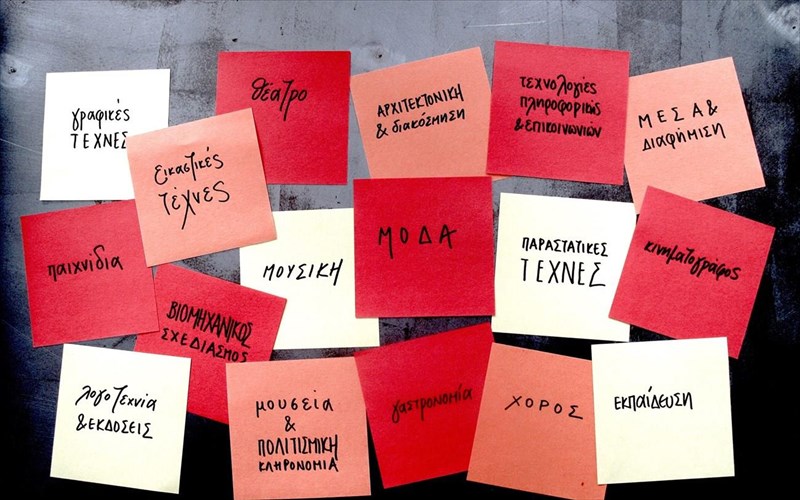 γραφικές
ΤΕΧΝΕΣ
θέατρο
ΑΡΧΙΤΕΚΤΟΝΙΚΗ
& διακόσμηση
τεχνολογίες
πληροφορικής
& επικοινωνιών
ΜΕΣΑ &
διαφήμιση
εικαστικές
τέχνες
παιχνίδια
ΜΟΥΣΙΚΗ
ΜΟΔΑ
ΠΑΡΑΣΤΑΤΙΚΕΣ
ΤΕΧΝΕΣ
κινηματογράφος
ΒΙΟΜΗΧΑΝΙΚΟΣ
ΣΧΕΔΙΑΣΜΟΣ
λογοτεχνία
& ΕΚΔΟΣΕΙΣ
μουσεία
&
ΠΟΛΙΤΙΣΜΙΚΗ
ΚΛΗΡΟΝΟΜΙΑ
γαστρονομία
ΧΟΡΟΣ
εκπαίδευση